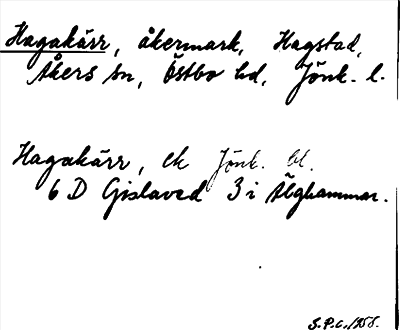 Hagakärr, åkermark, Hagstad,
Åkers sn, Östbo hd, Jönk. l.
Hagakärr, ek Jönk. bl.
6 D Gislaved 3 i Älghammar.
S.P.C., 1958.